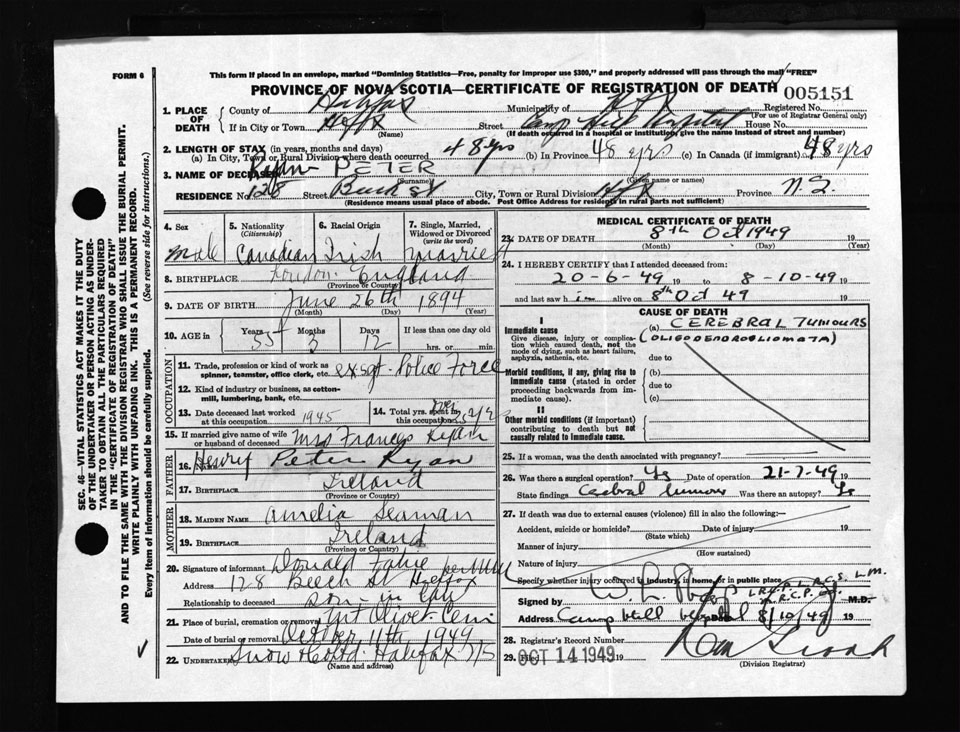 FORM 6
This form if placed in an envelope, marked "Dominion Statistics—Free, penalty for improper use $300," and properly addressed will pass through the mail "FREE"
PROVINCE OF NOVA SCOTIA—CERTIFICATE OF REGISTRATION OF DEATH
005151
1. PLACE OF DEATH County of Halifax Municipality of Hfx Registered No.
(For use of Registrar General only)
If in City or Town Hfx Street Camp Hill Hospital House No.
(Name) (If death occurred in a hospital or institution, give the name instead of street and number)
2. LENGTH OF STAY (in years, months and days)
(a) In City, Town or Rural Division where death occurred 48 yrs (b) In Province 48 yrs (c) In Canada (if immigrant) 48 yrs
3. NAME OF DECEASED Ryan PETER
(Surname) (Given name or names)
RESIDENCE No. 128 Street St City, Town or Rural Division Hfx Province N.S.
(Residence means usual place of abode. Post Office Address for residents in rural parts not sufficient)
4. Sex male
5. Nationality (Citizenship) Canadian
6. Racial Origin Irish
7. Single, Married, Widowed or Divorced (write the word) married
8. BIRTHPLACE London England
(Province or Country)
9. DATE OF BIRTH June 26th 1894
(Month) (Day) (Year)
10. AGE in Years 55 Months 3 Days 12 If less than one day old
hrs. or min.
OCCUPATION
11. Trade, profession or kind of work as spinner, teamster, office clerk, etc. ex sgt. Police Force
12. Kind of industry or business, as cotton-mill, lumbering, bank, etc.
13. Date deceased last worked at this occupation 1945
14. Total yrs. spent in this occupation
15. If married give name of wife or husband of deceased Mrs Frances Ryan
FATHER
16. Name Henry Peter Ryan
17. BIRTHPLACE Ireland
(Province or Country)
MOTHER
18. MAIDEN NAME Amelia Seaman
19. BIRTHPLACE Ireland
(Province or Country)
20. Signature of informant Donald per
Address 128 Beech St Halifax
Relationship to deceased son-in-law
21. Place of burial, cremation or removal Mt Olivet Cem
Date of burial or removal October 11th 1949
22. Undertaker Snow & Co Ltd. Halifax N/S
(Name and address)
MEDICAL CERTIFICATE OF DEATH
23. DATE OF DEATH 8th Oct 1949
(Month) (Day) (Year)
24. I HEREBY CERTIFY that I attended deceased from:
20-6-49 19 to 8-10-49 19
and last saw him alive on 8th Oct 49 19
CAUSE OF DEATH
I
Immediate cause (a) CEREBRAL TUMOURS
Give disease, injury or complication which caused death, not the mode of dying, such as heart failure, asphyxia, asthenia, etc. (OLIGODENDROGLIOMATA)
due to
Morbid conditions, if any, giving rise to immediate cause (stated in order proceeding backwards from immediate cause). (b)
due to
(c)
II
Other morbid conditions (if important) contributing to death but not causally related to immediate cause.
25. If a woman, was the death associated with pregnancy?
26. Was there a surgical operation? Yes Date of operation 21-7-49 19
State findings Cerebral tumours Was there an autopsy? Yes
27. If death was due to external causes (violence) fill in also the following:—
Accident, suicide or homicide? Date of injury 19
(State which)
Manner of injury
(How sustained)
Nature of injury
Specify whether injury occurred in industry, in home, or in public place
Signed by W. L. L.R.C.P. L.R.C.S. L.M. M.D.
Address Camp Hill Hospital 8/10/49 19
28. Registrar's Record Number
29. Filed OCT 14 1949 19
(Division Registrar)
SEC. 46—VITAL STATISTICS ACT MAKES IT THE DUTY
OF THE UNDERTAKER OR PERSON ACTING AS UNDER-
TAKER TO OBTAIN ALL THE PARTICULARS REQUIRED
IN THE "CERTIFICATE OF REGISTRATION OF DEATH"
AND TO FILE THE SAME WITH THE DIVISION REGISTRAR WHO SHALL ISSUE THE BURIAL PERMIT.
WRITE PLAINLY WITH UNFADING INK. THIS IS A PERMANENT RECORD.
Every item of information should be carefully supplied. (See reverse side for instructions.)